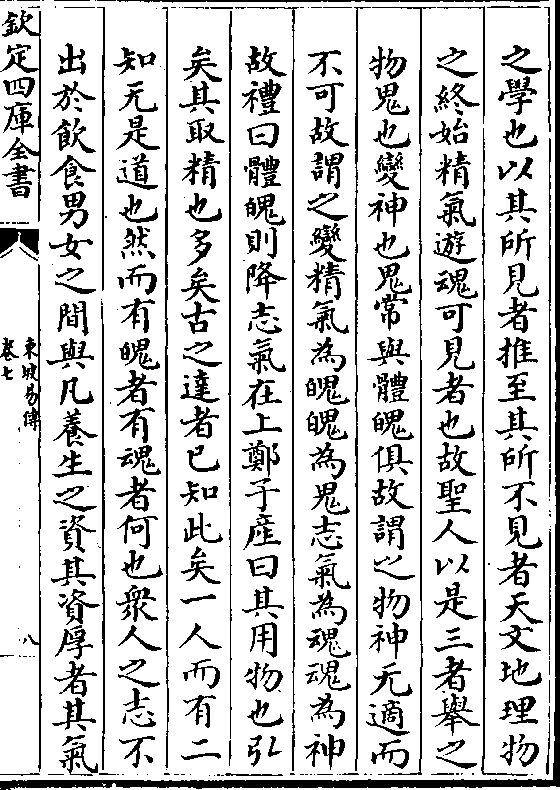 之學也以其所見者推至其所不見者天文地理物
之終始精氣遊魂可見者也故聖人以是三者舉之
物鬼也變神也鬼常與體魄俱故謂之物神无適而
不可故謂之變精氣為魄魄為鬼志氣為魂魂為神
故禮曰體魄則降志氣在上鄭子產曰其用物也弘
矣其取精也多矣古之達者已知此矣一人而有二
知无是道也然而有魄者有魂者何也衆人之志不
出於飲食男女之間與凡養生之資其資厚者其氣
欽定四庫全書
東坡易傳
卷七
八